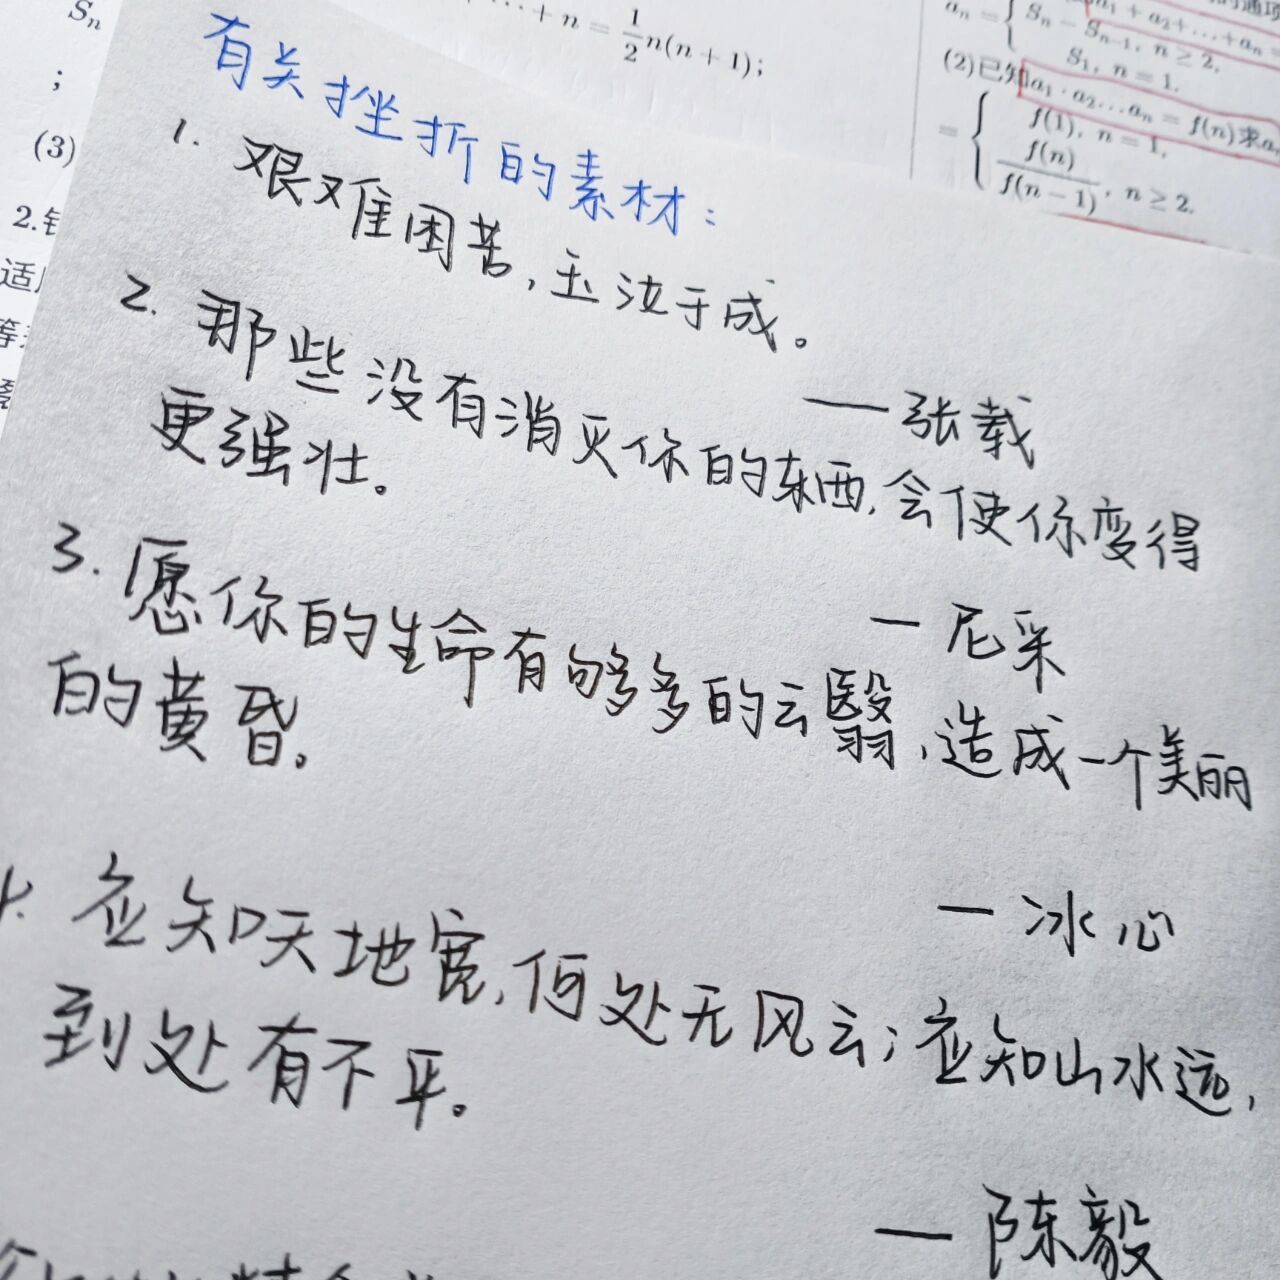 S_n
;
(3)
2.
适
⋯ + n = 1/2 n(n + 1);
a₁ + a₂ + … + aₙ =
aₙ = { Sₙ − Sₙ₋₁, n ≥ 2,
S₁, n = 1.
(2)已知a₁ · a₂ … aₙ = f(n)求a
= { f(1), n = 1,
f(n)/f(n − 1), n ≥ 2.
有关挫折的素材:
1. 艰难困苦,玉汝于成。
——张载
2. 那些没有消灭你的东西,会使你变得
更强壮。
—尼采
3. 愿你的生命有够多的云翳,造成一个美丽
的黄昏。
—冰心
4. 应知天地宽,何处无风云;应知山水远,
到处有不平。
—陈毅